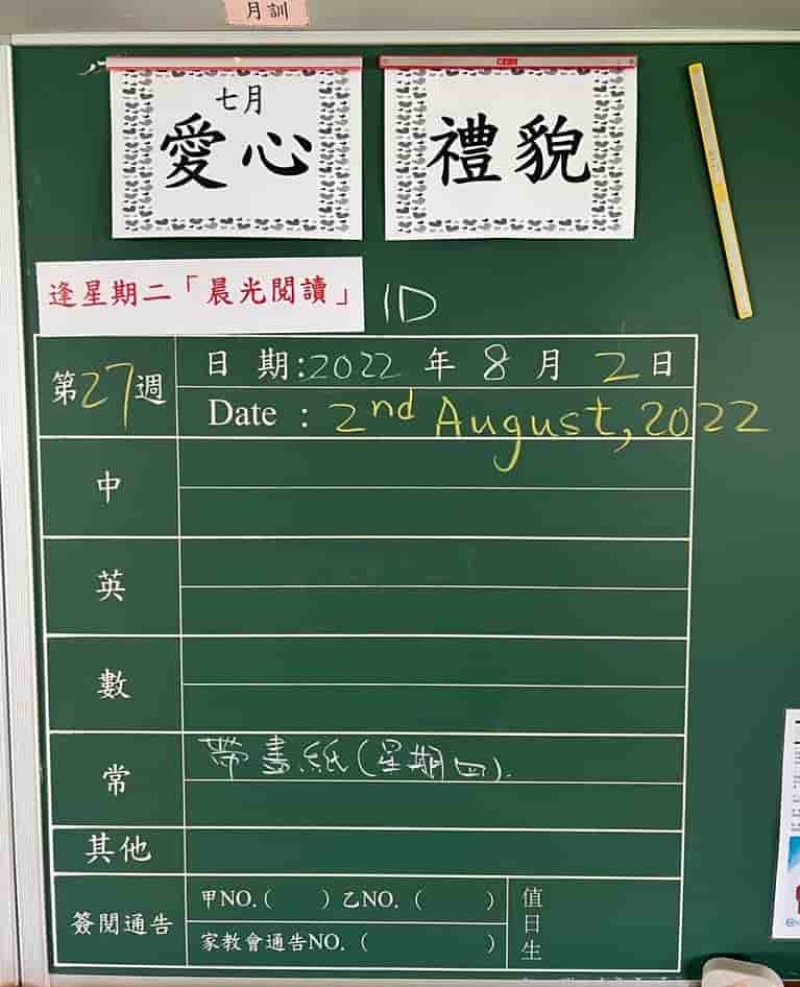 月訓
七月
愛心
禮貌
逢星期二「晨光閱讀」 1D
第27週
日 期:2022 年 8 月 2 日
Date : 2nd August, 2022
中
英
數
常
帶畫紙(星期四).
其他
簽閱通告
甲NO.( ) 乙NO. ( )
家教會通告NO. ( )
值日生